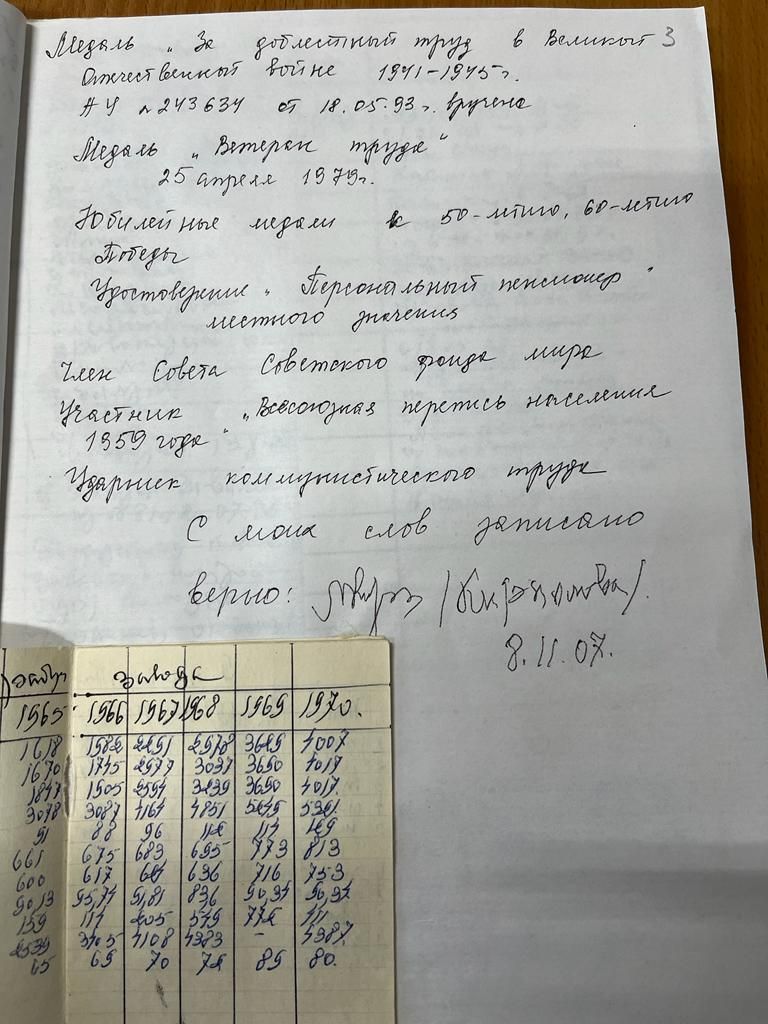 Медаль „За доблестный труд в Великой 3
Отечественной войне 1941-1945г.
АЧ №243634 от 18.05.93г. вручена
Медаль „Ветеран труда"
25 апреля 1979г.
Юбилейные медали к 50-летию, 60-летию
Победы
Удостоверение „Персональный пенсионер"
местного значения
Член Совета Советского фонда мира
Участник „Всесоюзная перепись населения
1959 года"
Ударник коммунистического труда
С моих слов записано
верно:
8.11.07.
завода
1965 1966 1967 1968 1969 1970.
1618 1582 2291 2978 3625 4007
1670 1745 2577 3037 3650 4017
1847 1505 2594 3239 3650 4017
3078 3087 4164 4851 5245 5321
91 88 96 112 114 129
661 675 683 695 773 813
600 617 621 636 716 753
90,13 95,74 91,81 836 90,34 90,34
159 114 205 549 772 411
2539 3405 4108 4383 - 4387
65 69 70 72 89 80.